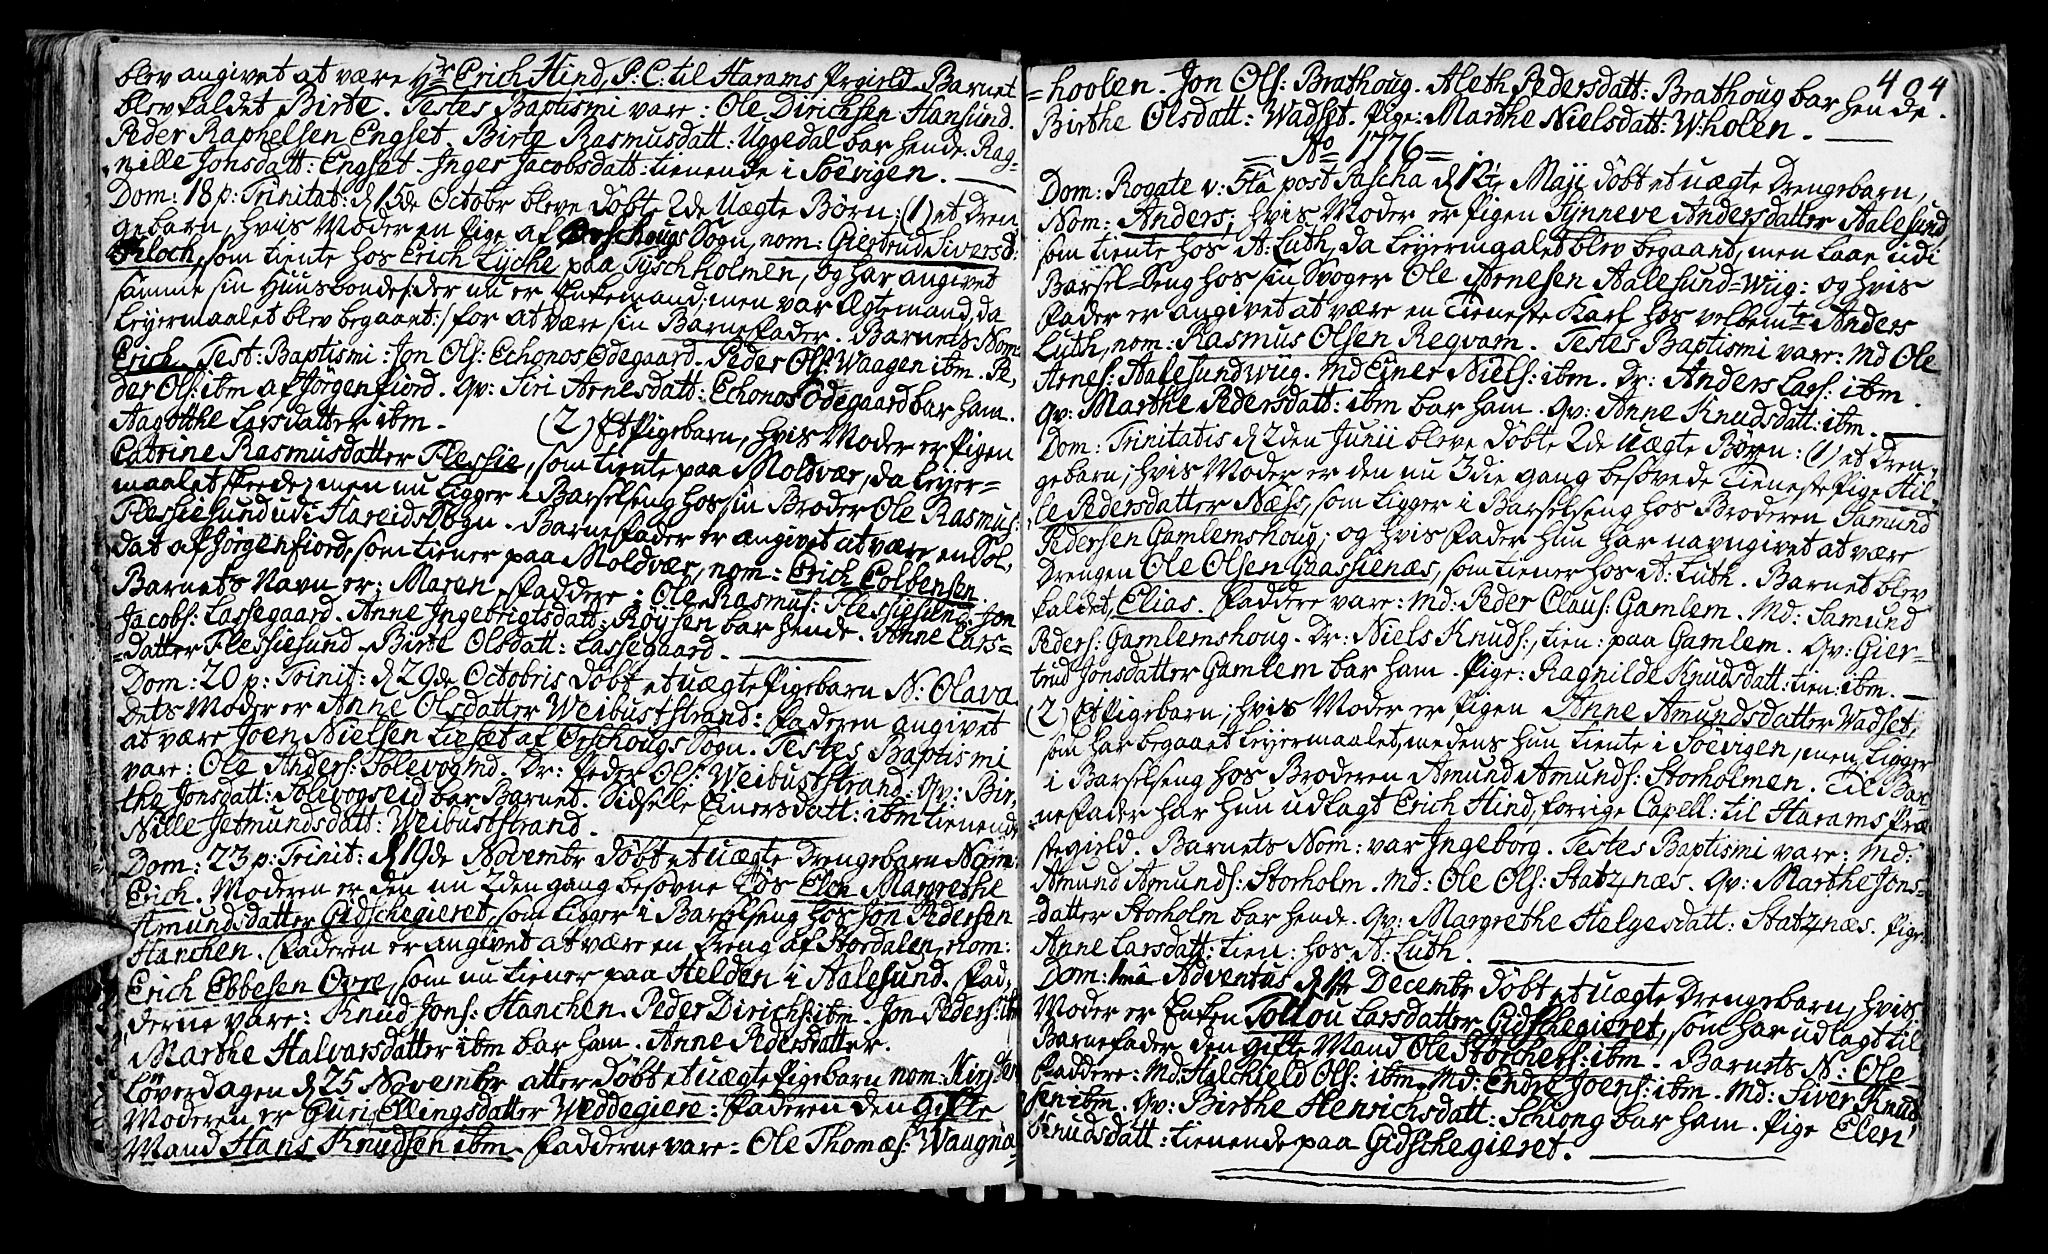 blev angivet at være Hr Erich Hind, P: C: til Harams Prgield. Barnet
blev kaldet Birte. Testes Baptismi vare: Ole Dirichsen Hansund.
Peder Raphelsen Engset. Birte Rasmusdatt: Uggedal bar hende. Rag-
nille Jonsdatt: Engset. Inger Jacobsdatt: tienende i Söevigen.
Dom: 18 p: Trinitat: d 15de Octobr bleve döbt 2de Uægte Börn: (1) et Dren-
gebarn, hvis Moder en Pige af Örschougs Sogn, nom: Giertrud Siversd:
Kloch, som tiente hos Erich Lyche paa Tyschholmen, og har angivet
samme sin Huusbonde/: der nu er Enkemand; men var Ægtemand, da
Leyermaalet blev begaaet:/ for at være sin Barnefader. Barnets Nom:
Erich. Test: Baptismi: Jon Ols: Echonos Ödegaard. Peder Ols: Waagen ibm. Pe-
der Ols: ibm af Jörgenfiord. Qv: Siri Arnesdatt: Echonos Ödegaard bar ham.
Aagöthe Larsdatter ibm. (2) Et Pigebarn, hvis Moder er Pigen
Catrine Rasmusdatter Flessie, som tiente paa Moldvær, da Leyer-
maalet skeede; men nu ligger i Barselseng hos sin Broder Ole Rasmus:
Flessiesund udi Hareids Sogn. Barnefader er angivet at være en Sol-
dat af Jörgenfiord, som tiener paa Moldvær, nom: Erich Colbensen.
Barnets Navn er: Maren. Faddere: Ole Rasmus: Flessiesund. Jon
Jacobs: Lassegaard. Anne Ingebrigtsdatt: Röysen bar hende. Anne Lars-
datter Flessiesund. Birte Olsdatt: Lassegaard.
Dom: 20 p: Trinit: d 29de Octobris döbt et uægte Pigebarn N: Olava
dets Moder er Anne Olsdatter Weibuststrand: Faderen angivet
at være Joen Nielsen Lieset af Örschougs Sogn. Testes Baptismi
vare: Ole Anders: Solevog md. Dr: Peder Ols: Weibuststrand. Qv: Bir-
the Jonsdatt: Solevogseid bar Barnet. Sidselle Einersdatt: ibm tienende
Nille Jetmundsdatt: Weibuststrand.
Dom: 23 p: Trinit: d 19de Novembr döbt et uægte Drengebarn Nom:
Erich. Moderen er den nu 2den gang besovne Tös Elen Margrethe
Amundsdatter Gidschegieret, som ligger i Barselseng hos Jon Pedersen
Hanchen. Faderen er angivet at være en Dreng af Stordalen, nom:
Erich Ebbesen Övre, som nu tiener paa Helden i Aalesund. Fad-
derne vare: Knud Jons: Hanchen. Peder Dirichs: ibm. Jon Peders: ibm
Marthe Halvarsdatter ibm bar ham. Anne Pedersdatter.
Löverdagen d 25 Novembr atter döbt et uægte Pigebarn nom: Kirsten
Moderen er Guri Ellingsdatter Weddegiere: Faderen den gifte
Mand Hans Knudsen ibm. Fadderne vare: Ole Thomæs: Waagnæ
404
=hoolen. Jon Ols: Brathoug. Aleth Pedersdatt: Brathoug bar hende.
Birthe Olsdatt: Wadset. Pige: Marthe Nielsdatt: W:holen.
= Ao 1776 =
Dom: Rogate v: 5ta post Pascha d 12te Maji döbt et uægte Drengebarn,
Nom: Anders; hvis Moder er Pigen Synneve Andersdatter Aalesund,
som tiente hos A: Luth, da Leyermaalet blev begaaet, men laae udi
Barsel-Seng hos sin Svoger Ole Arnesen Aalesund=Wiig: og hvis
Fader er angivet at være en Tieneste Karl hos velbemte Anders
Luth, nom: Rasmus Olsen Reqvam. Testes Baptismi vare: Md Ole
Arnes: Aalesundwiig. Md Einer Niels: ibm. Dr: Anders Lars: ibm.
Qv: Marthe Pedersdatt: ibm bar ham. Qv: Anne Knudsdatt: ibm.
Dom: Trinitatis d 2den Junii bleve döbte 2de uægte Börn: (1) et Dren-
gebarn; hvis Moder er den nu 3die gang besovede Tieneste Pige Hil-
le Pedersdatter Næss, som ligger i Barselseng hos Broderen Samund
Pedersen Gamlemshoug; og hvis Fader hun har navngivet at være
Drengen Ole Olsen Gaassienæs, som tiener hos A: Luth. Barnet blev
kaldet, Elias. Faddere vare: Md: Peder Claus: Gamlem. Md: Samund
Peders: Gamlemshoug. Dr: Niels Knuds:, tien: paa Gamlem. Qv: Gier-
trud Jonsdatter Gamlem bar ham. Pige: Ragnilde Knudsdatt: tien: ibm.
(2) Et Pigebarn; hvis Moder er Pigen Anne Amundsdatter Wadset,
som har begaaet Leyermaalet, medens hun tiente i Söevigen, men ligger
i Barselseng hos Broderen Amund Amunds: Storholmen. Til Bar-
nefader har hun udlagt Erich Hind, forrige Capell: til Harams Præ-
stegield. Barnets Nom: var Ingeborg. Testes Baptismi vare: Md:
Amund Amunds: Storholm. Md: Ole Ols: Statznæs. Qv: Marthe Jons-
datter Storholm bar hende. Qv: Margrethe Helgesdatt: Statznæs. Pige:
Anne Larsdatt: tien: hos A: Luth.
Dom: 1ma Adventus d 1ste Decembr döbt et uægte Drengebarn, hvis
Moder er Enken Tollou Larsdatter Gidschegieret, som har udlagt til
Barnefader den gifte Mand Ole Storchers: ibm. Barnets N: Ole
Faddere: Md Halchield Ols: ibm. Md: Endre Joens: ibm. Md: Siver Knud-
sen ibm. Qv: Birthe Henrichsdatt: Schiong bar ham. Pige Elen
Knudsdatt: tienende paa Gidschegieret.